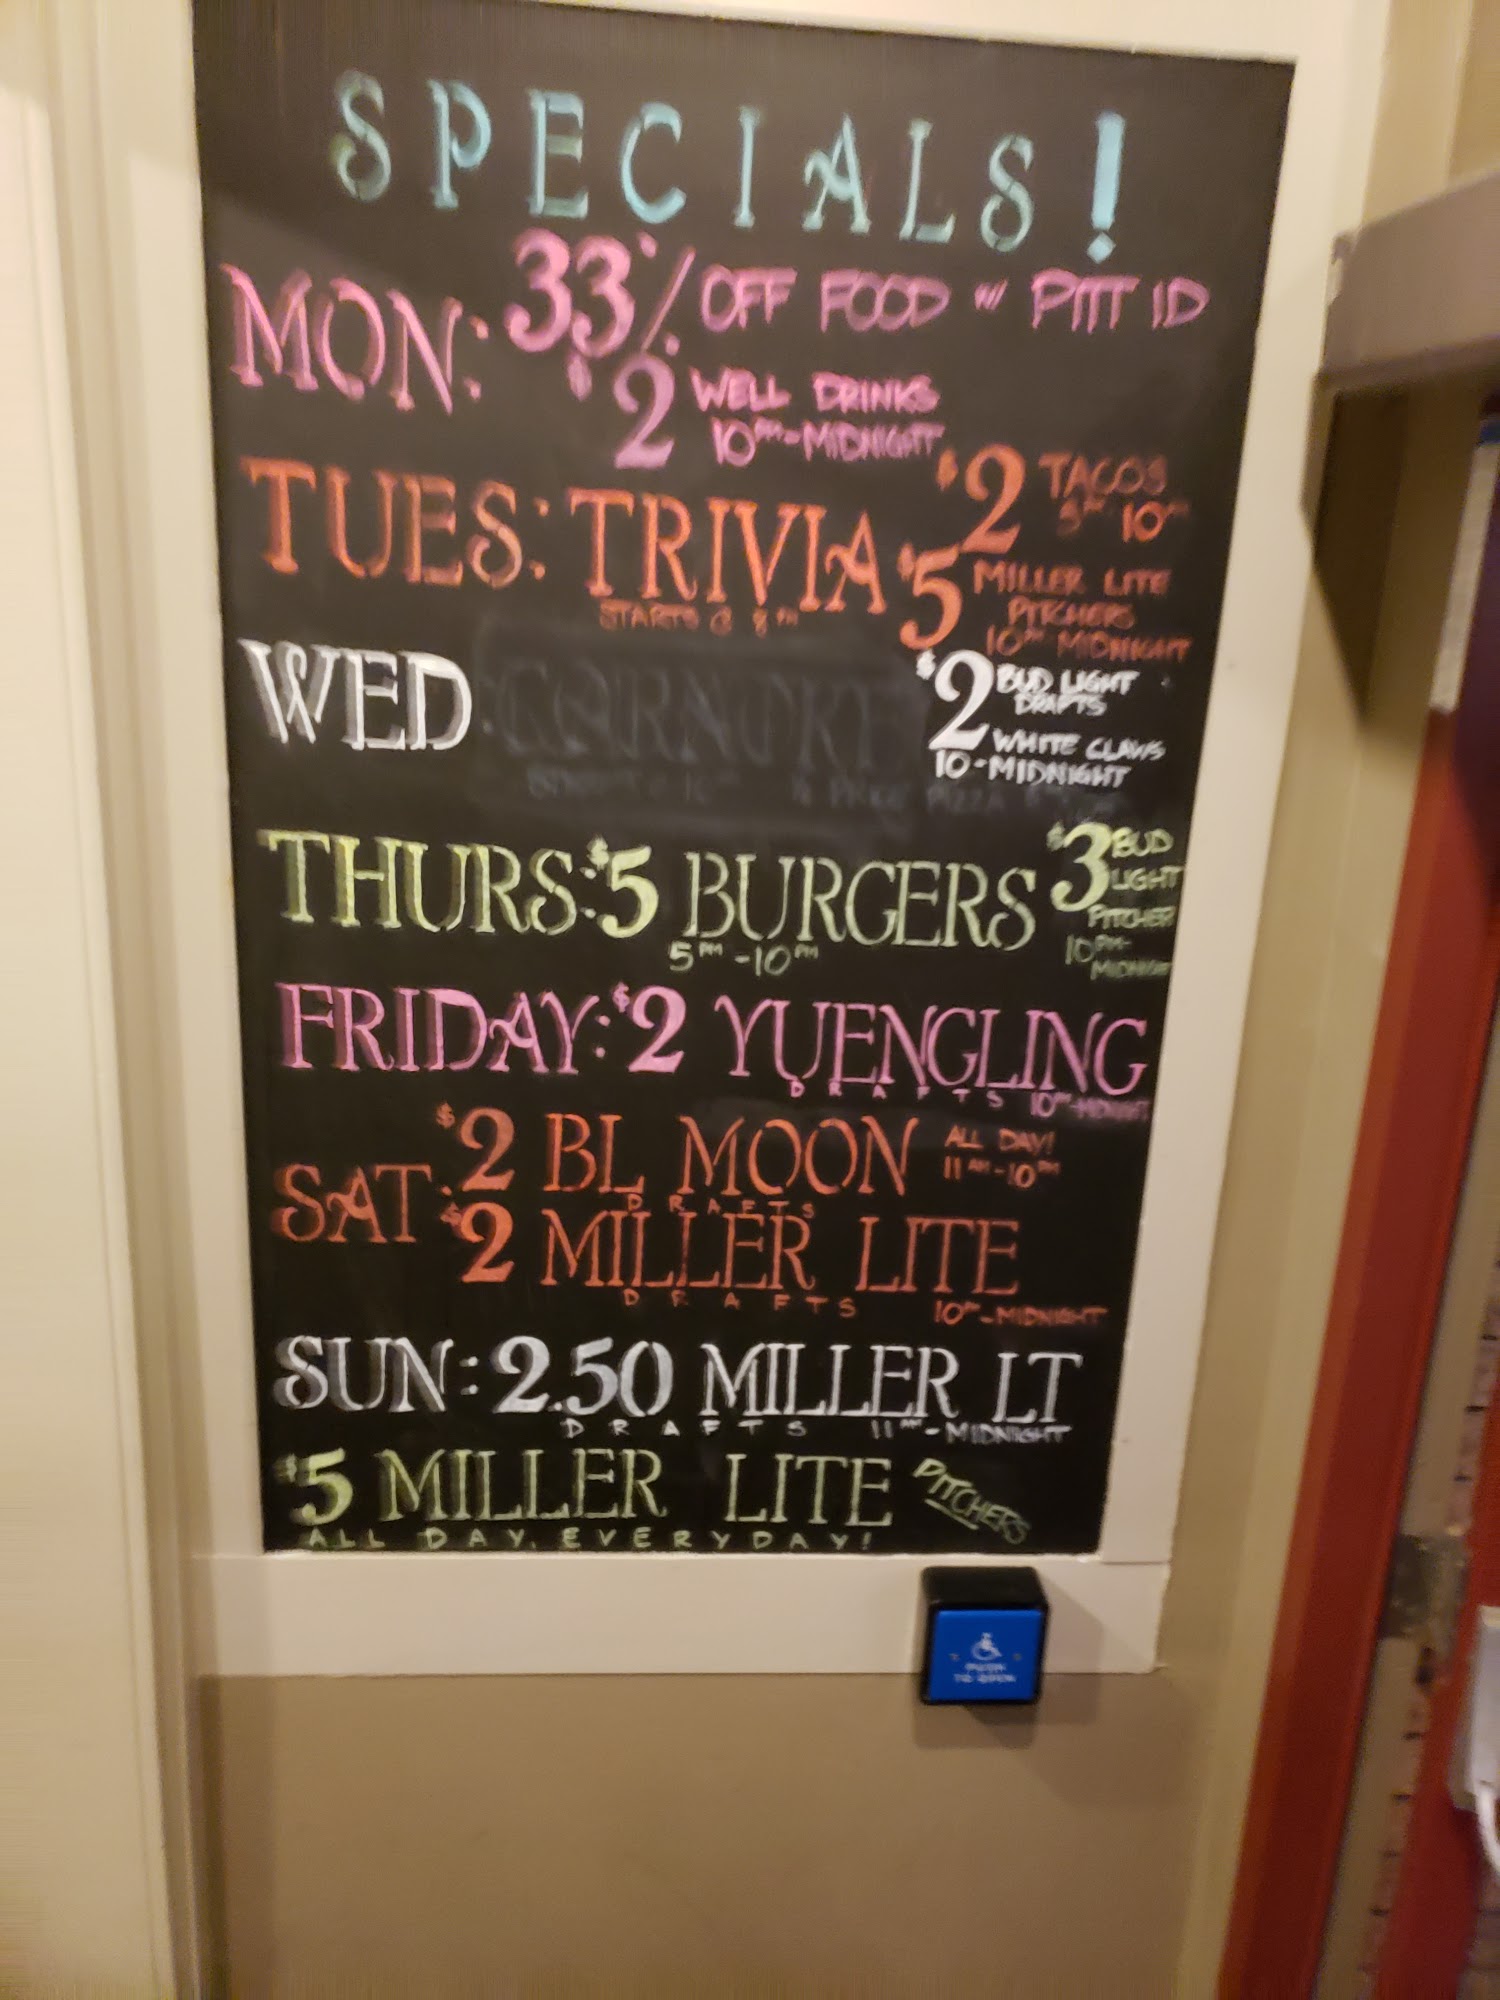 SPECIALS!
MON: 33% OFF FOOD w/ PITT ID
$2 WELL DRINKS
10PM-MIDNIGHT
TUES: TRIVIA
STARTS @ 8PM
$2 TACOS
5PM 10PM
$5 MILLER LITE
PITCHERS
10PM MIDNIGHT
WED
$2 BUD LIGHT
DRAFTS
WHITE CLAWS
10-MIDNIGHT
THURS: $5 BURGERS
5PM-10PM
$3 BUD
LIGHT
PITCHER
10PM-
MIDNIGHT
FRIDAY: $2 YUENGLING
DRAFTS 10PM-MIDNIGHT
SAT: $2 BL MOON ALL DAY!
DRAFTS 11AM-10PM
$2 MILLER LITE
DRAFTS 10PM-MIDNIGHT
SUN: 2.50 MILLER LT
DRAFTS 11AM-MIDNIGHT
$5 MILLER LITE PITCHERS
ALL DAY, EVERYDAY!
PUSH
TO OPEN